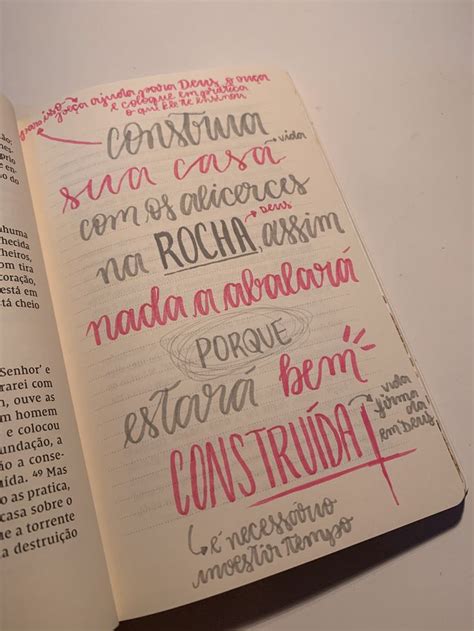 para isso, peça ajuda para Deus, o ouça
e coloque em prática
o que Ele te ensinou
Construa
→ vida
sua casa
com os alicerces
→ Deus
na ROCHA, assim
nada a abalará
PORQUE
estará bem
CONSTRUÍDA
→ vida
firma
da
em Deus
↳ é necessário
investir tempo
nhuma
hecida
heiros,
om tira
coração,
está em
tá cheio
Senhor' e
rarei com
, ouve as
m homem
e colocou
undação, a
ão a conse-
uída. 49 Mas
o as pratica,
casa sobre o
e a torrente
a destruição